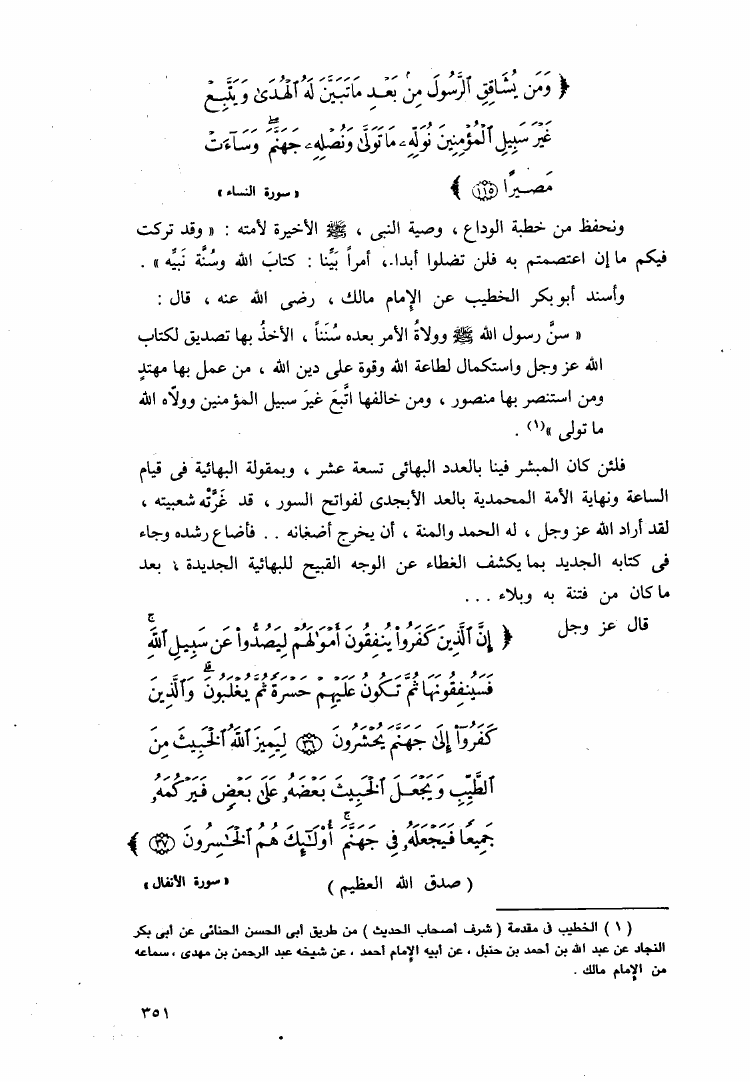 ﴿ وَمَن يُشَاقِقِ ٱلرَّسُولَ مِنۢ بَعْدِ مَا تَبَيَّنَ لَهُ ٱلْهُدَىٰ وَيَتَّبِعْ
غَيْرَ سَبِيلِ ٱلْمُؤْمِنِينَ نُوَلِّهِۦ مَا تَوَلَّىٰ وَنُصْلِهِۦ جَهَنَّمَ ۖ وَسَآءَتْ
مَصِيرًا ﴿١١٥﴾ ﴾ « سورة النساء »
ونحفظ من خطبة الوداع ، وصية النبى ، ﷺ الأخيرة لأمته : « وقد تركت
فيكم ما إن اعتصمتم به فلن تضلوا أبدا.، أمراً بَيِّنا : كتابَ الله وسُنَّة نَبيِّه » .
وأسند أبو بكر الخطيب عن الإمام مالك ، رضى الله عنه ، قال :
« سنَّ رسول الله ﷺ وولاةُ الأمر بعده سُنَناً ، الأخذُ بها تصديق لكتاب
الله عز وجل واستكمال لطاعة الله وقوة على دين الله ، من عمل بها مهتدٍ
ومن استنصر بها منصور ، ومن خالفها اتَّبعَ غيرَ سبيل المؤمنين وولّاه الله
ما تولى »(١) .
فلئن كان المبشر فينا بالعدد البهائى تسعة عشر ، وبمقولة البهائية فى قيام
الساعة ونهاية الأمة المحمدية بالعد الأبجدى لفواتح السور ، قد غَرَّتْه شعبيته ،
لقد أراد الله عز وجل ، له الحمد والمنة ، أن يخرج أضغانه .. فأضاع رشده وجاء
فى كتابه الجديد بما يكشف الغطاء عن الوجه القبيح للبهائية الجديدة ، بعد
ما كان من فتنة به وبلاء ...
قال عز وجل ﴿ إِنَّ ٱلَّذِينَ كَفَرُوا۟ يُنفِقُونَ أَمْوَٰلَهُمْ لِيَصُدُّوا۟ عَن سَبِيلِ ٱللَّهِ ۚ
فَسَيُنفِقُونَهَا ثُمَّ تَكُونُ عَلَيْهِمْ حَسْرَةً ثُمَّ يُغْلَبُونَ ۗ وَٱلَّذِينَ
كَفَرُوٓا۟ إِلَىٰ جَهَنَّمَ يُحْشَرُونَ ﴿٣٦﴾ لِيَمِيزَ ٱللَّهُ ٱلْخَبِيثَ مِنَ
ٱلطَّيِّبِ وَيَجْعَلَ ٱلْخَبِيثَ بَعْضَهُۥ عَلَىٰ بَعْضٍ فَيَرْكُمَهُۥ
جَمِيعًا فَيَجْعَلَهُۥ فِى جَهَنَّمَ ۚ أُو۟لَٰٓئِكَ هُمُ ٱلْخَٰسِرُونَ ﴿٣٧﴾ ﴾
( صدق الله العظيم ) « سورة الأنفال »
( ١ ) الخطيب فى مقدمة ( شرف أصحاب الحديث ) من طريق أبى الحسن الحنائى عن أبى بكر
النجاد عن عبد الله بن أحمد بن حنبل ، عن أبيه الإمام أحمد ، عن شيخه عبد الرحمن بن مهدى ، سماعه
من الإمام مالك .
٣٥١